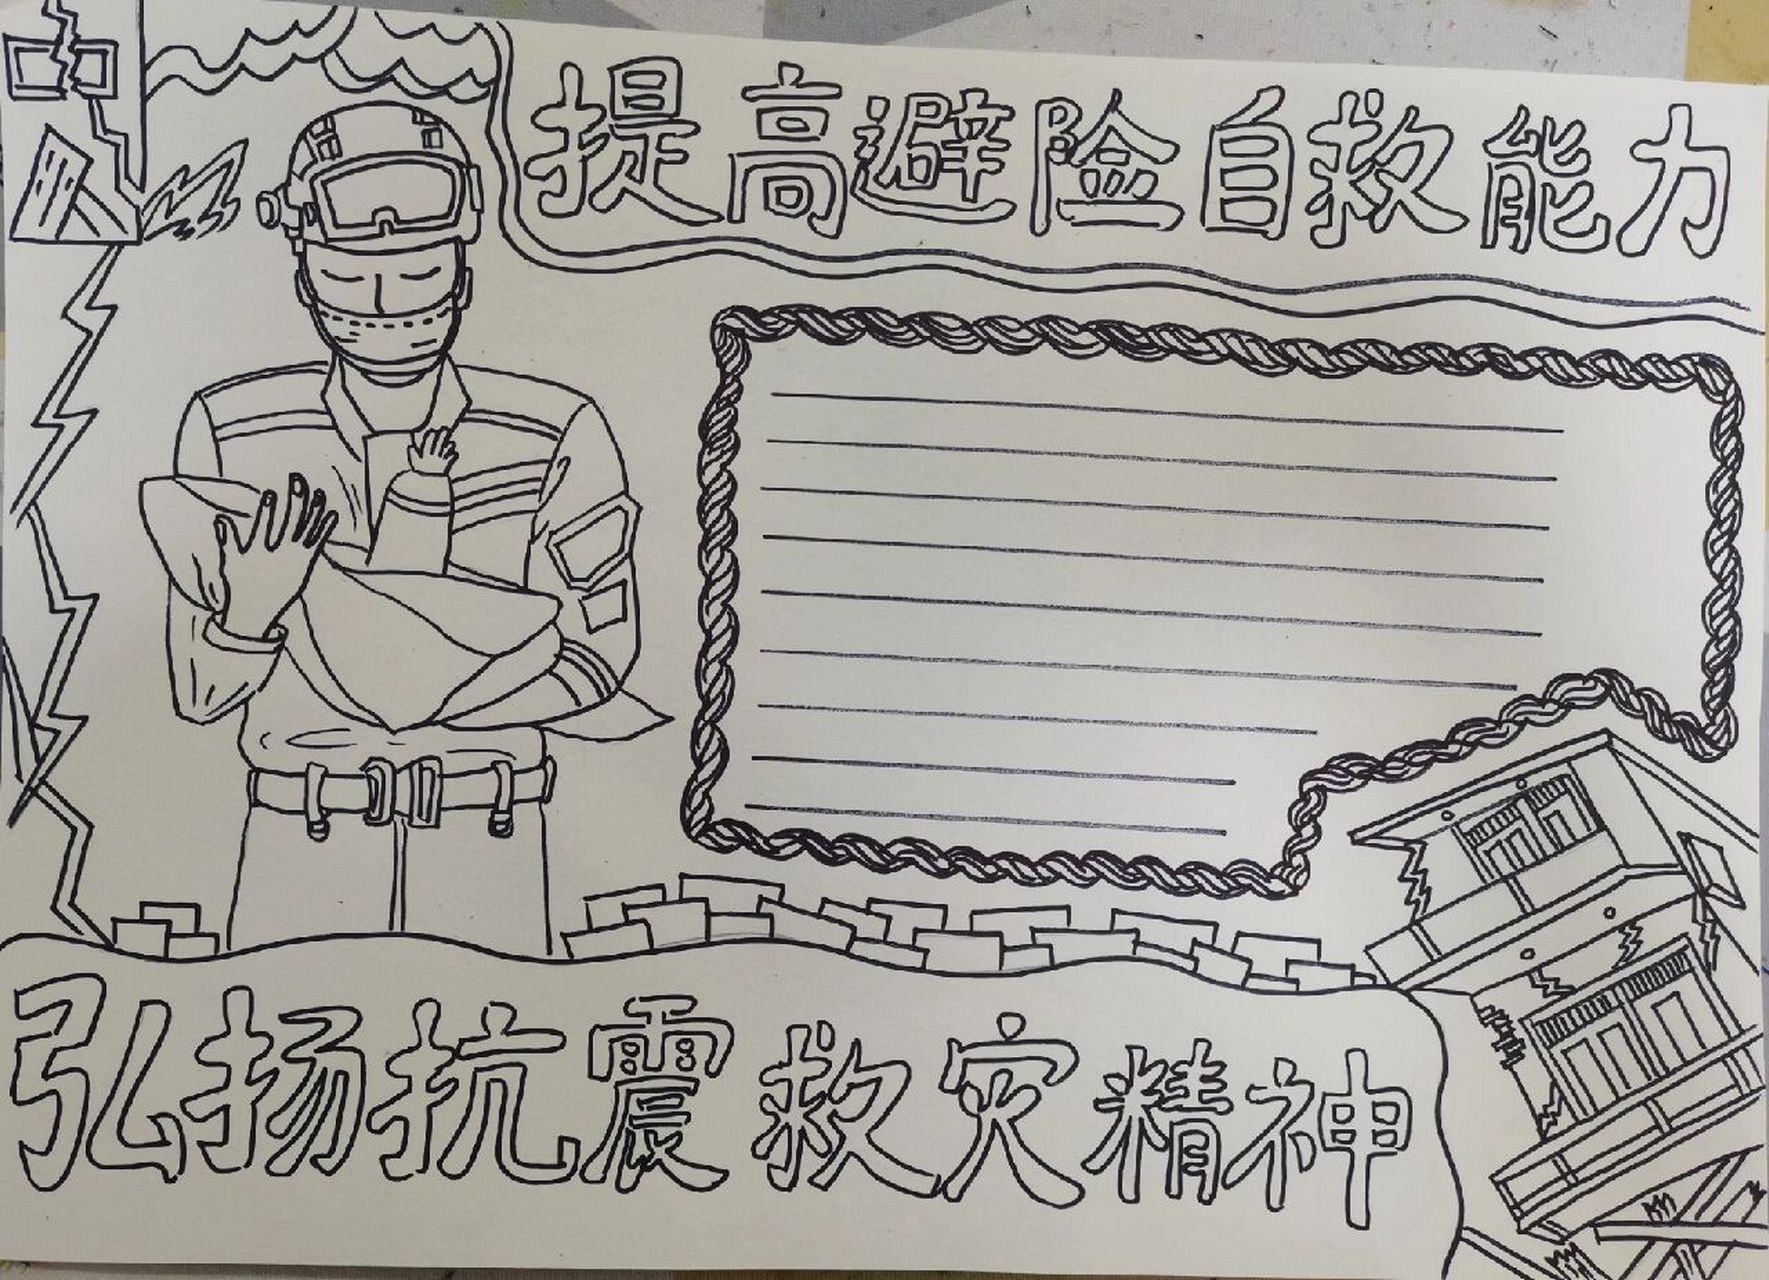 提高避险自救能力
弘扬抗震救灾精神